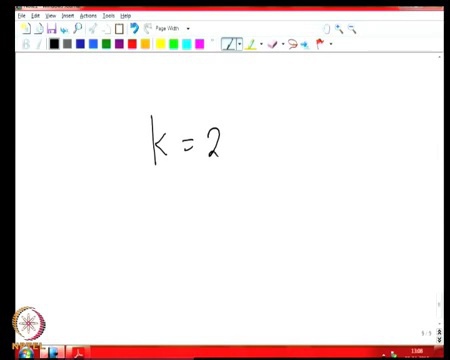 File Edit View Insert Actions Tools Help
Page Width
k = 2
5/5
13:08